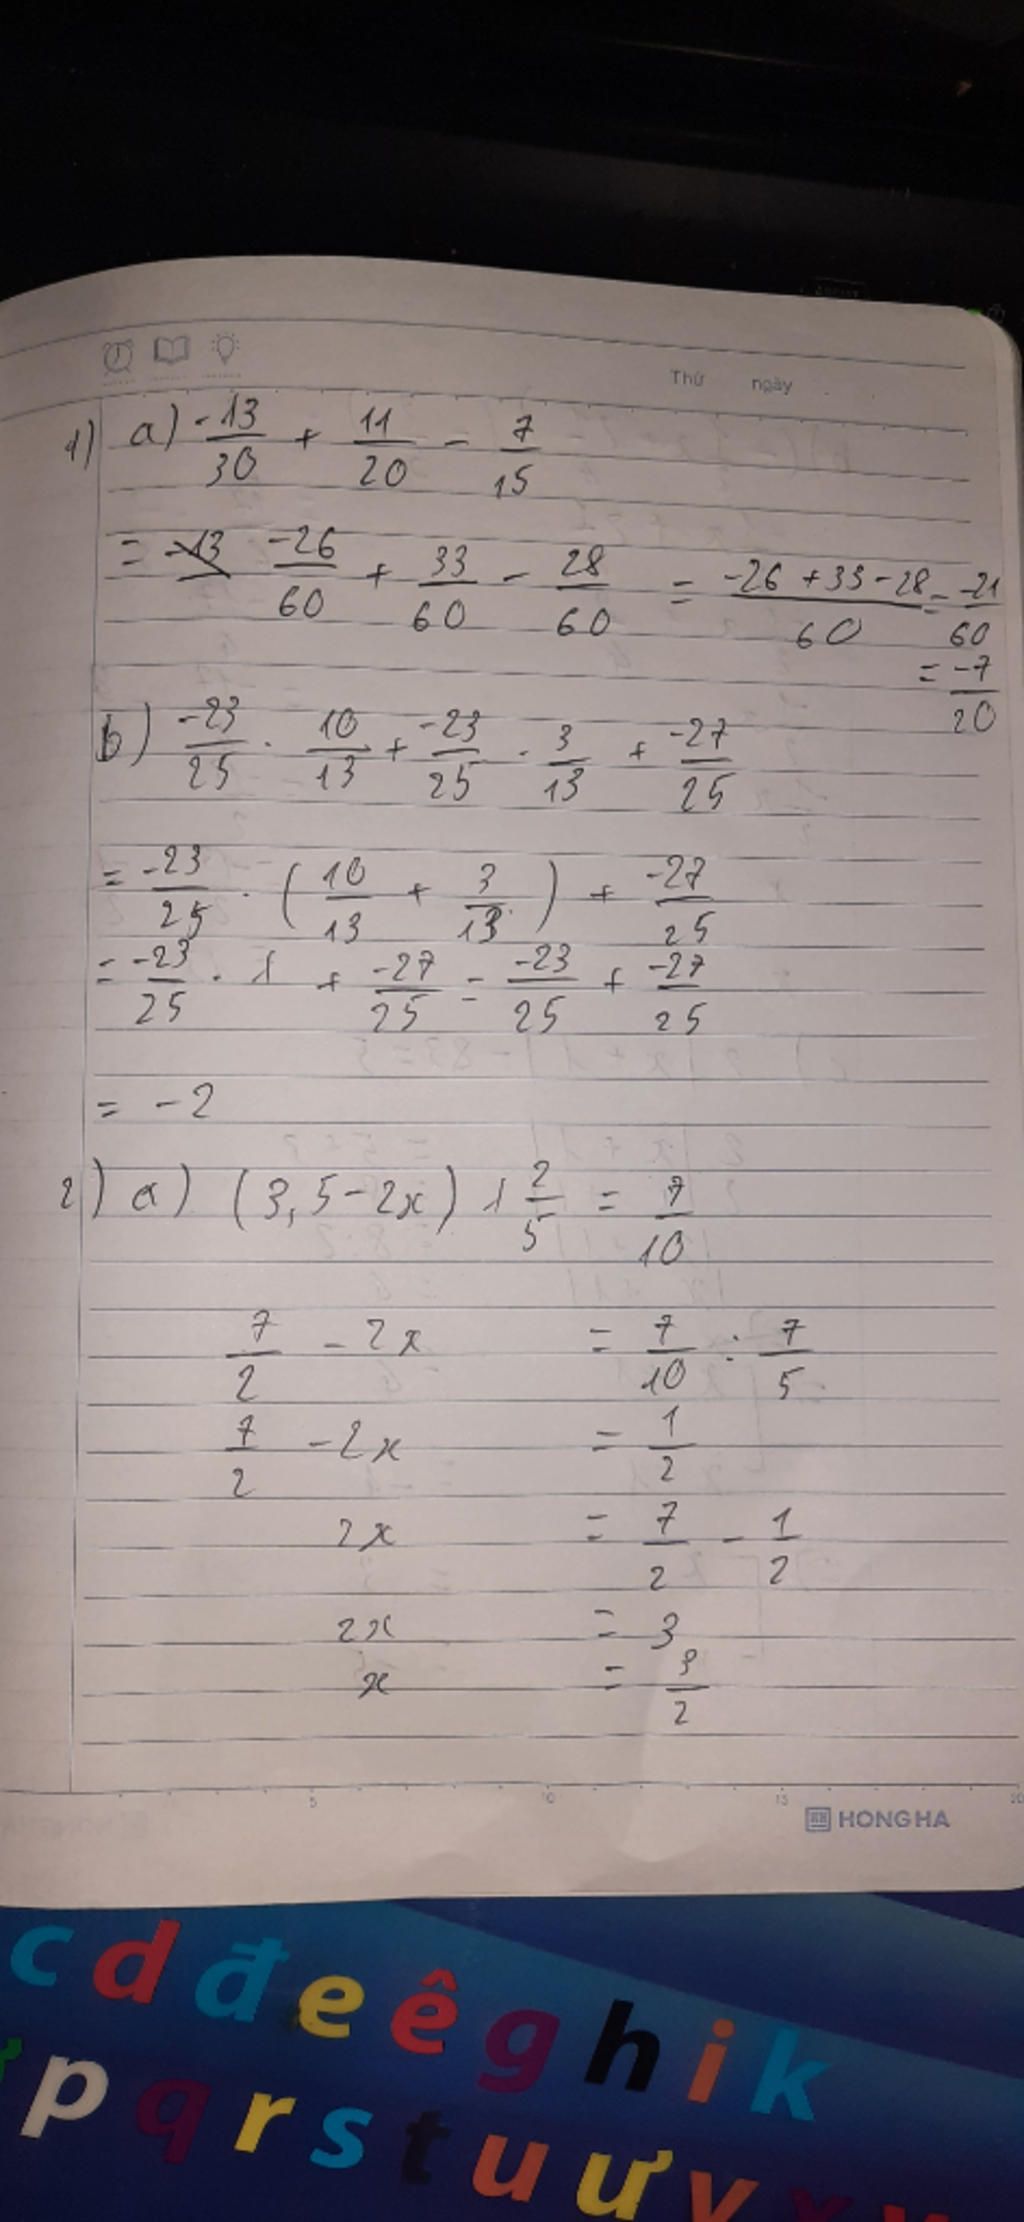 Thứ ngày
1) a) -13/30 + 11/20 - 7/15
= -13 -26/60 + 33/60 - 28/60 = -26 + 33 - 28/60 = -21/60
= -7/20
b) -23/25 . 10/13 + -23/25 . 3/13 + -27/25
= -23/25 . (10/13 + 3/13) + -27/25
= -23/25 . 1 + -27/25 = -23/25 + -27/25
= -2
2) a) (3,5 - 2x) 1 2/5 = 7/10
7/2 - 2x = 7/10 : 7/5
7/2 - 2x = 1/2
2x = 7/2 - 1/2
2x = 3
x = 3/2
5 10 15 20
HONG HA
c d đ e ê g h i k
ư p q r s t u ư v x